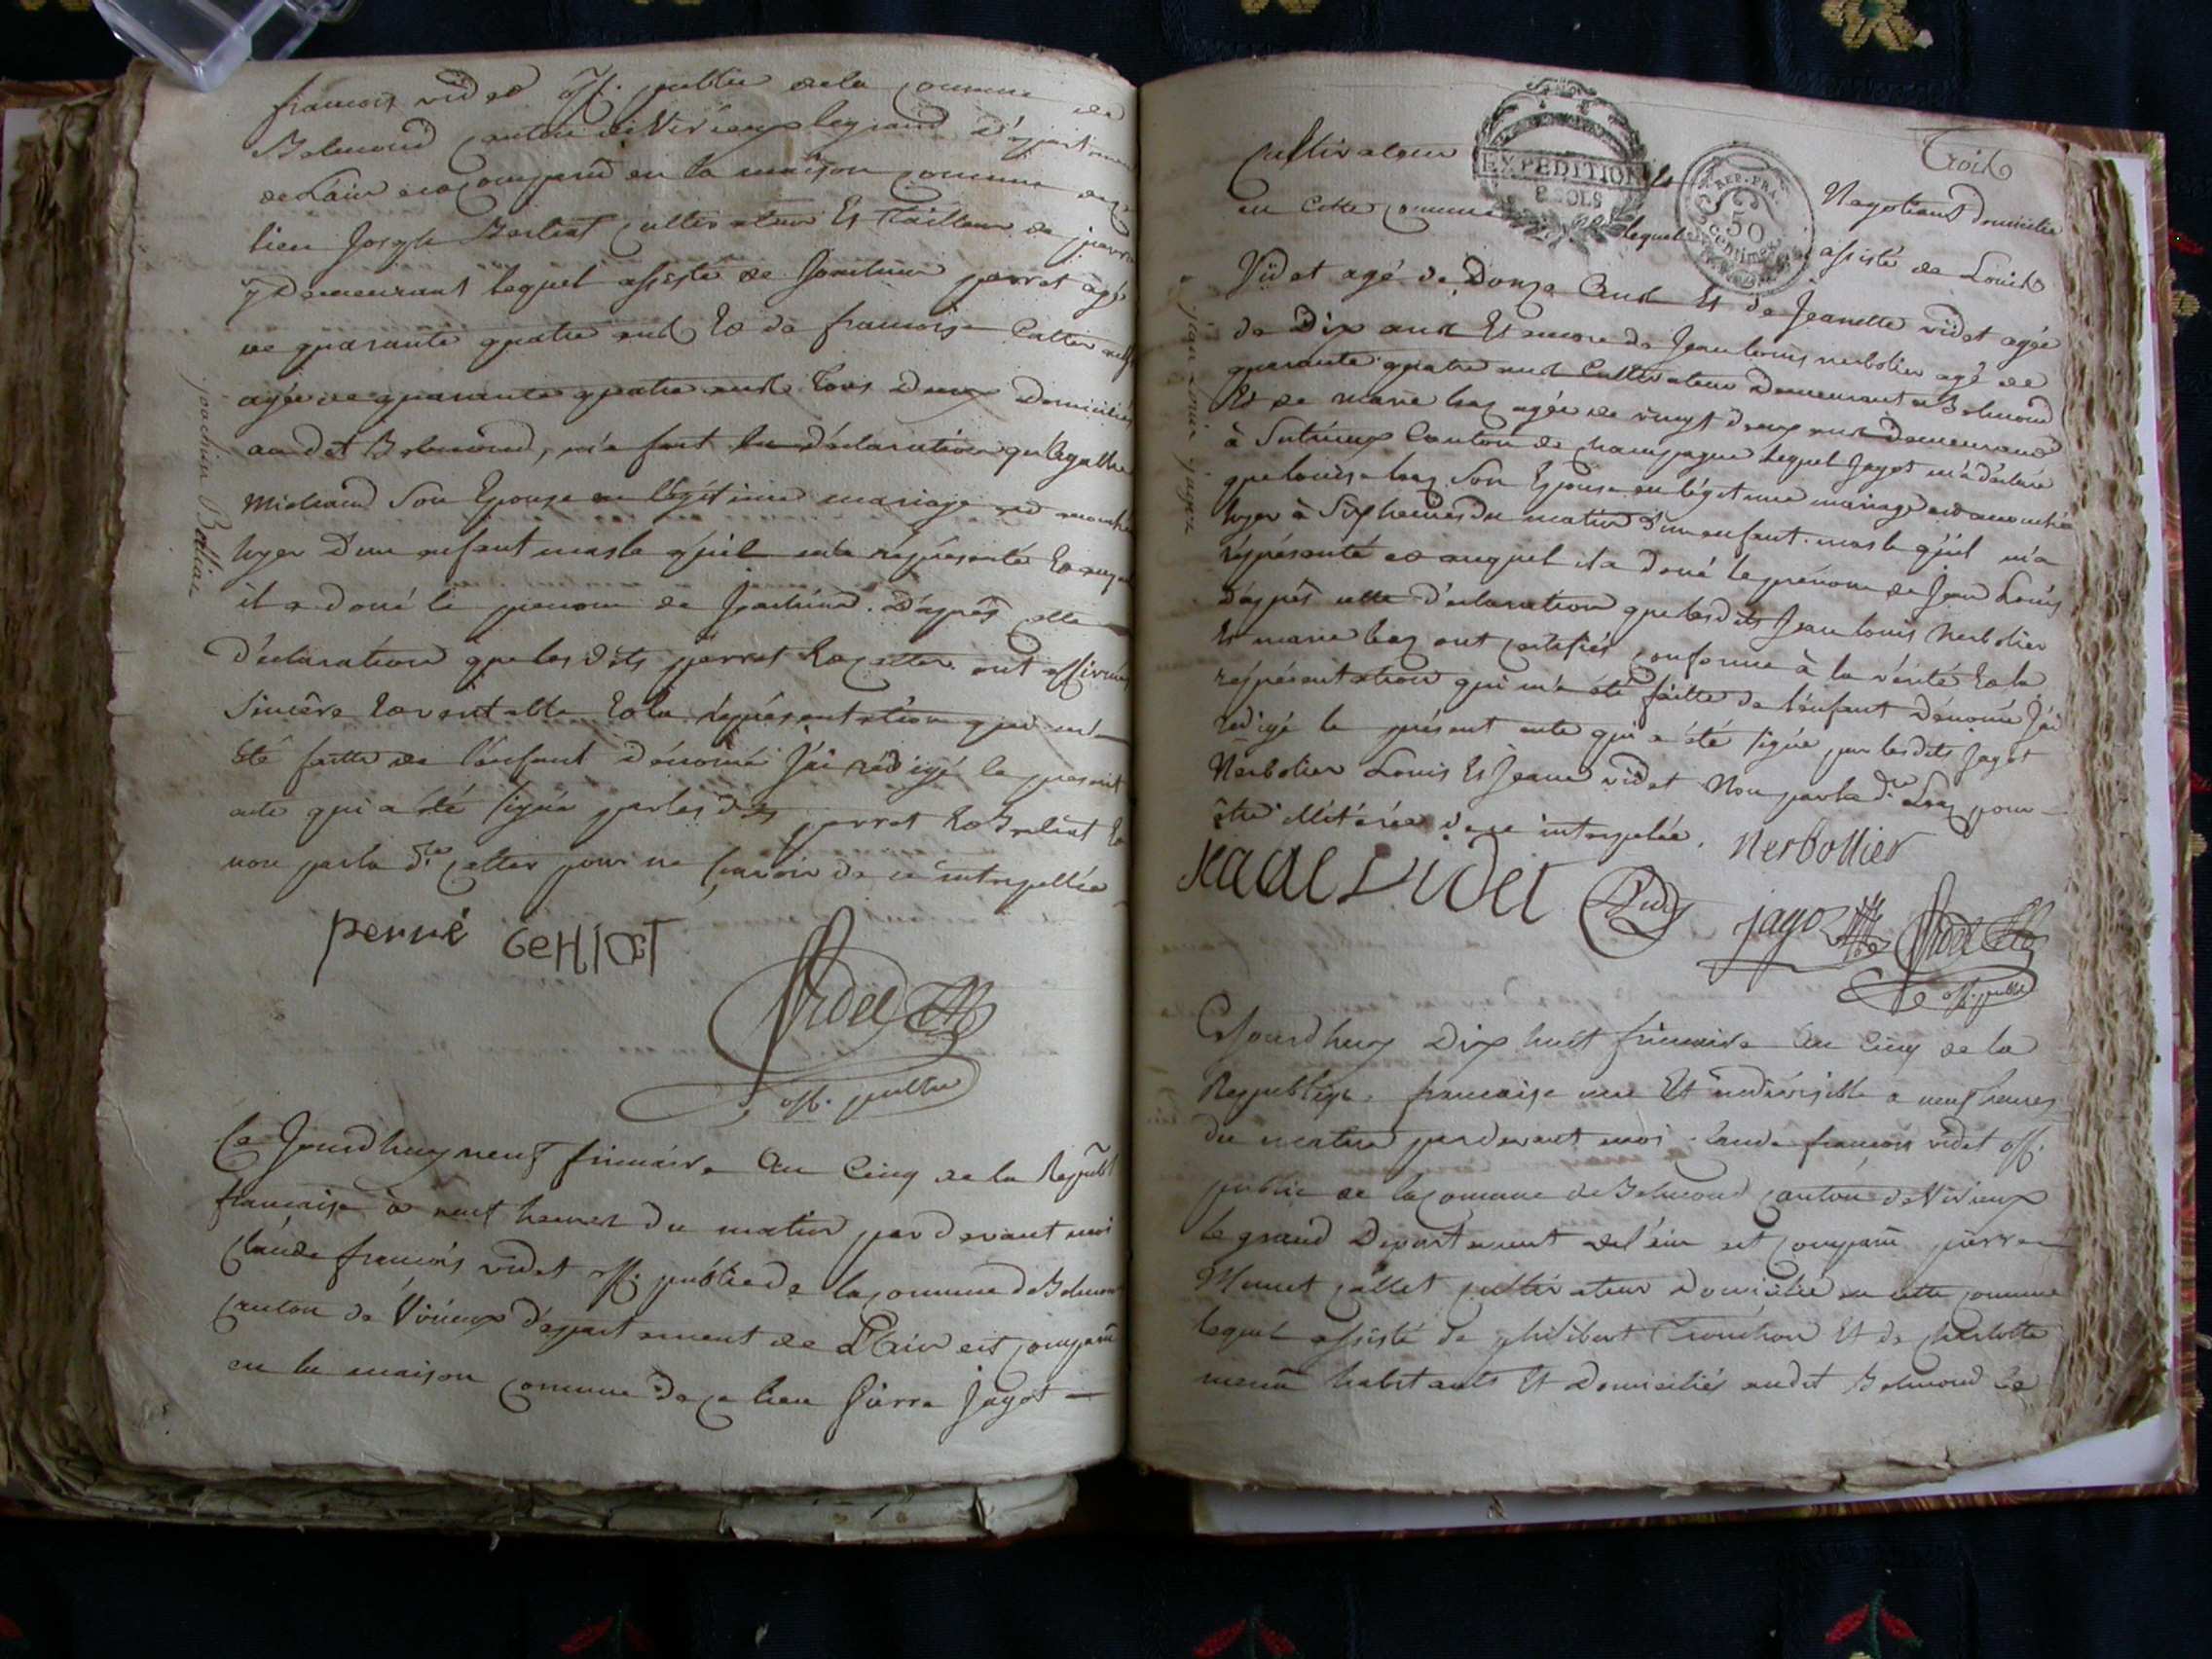 francois videt off. public de la commune de
Belmond canton de Virieux le grand département
de Lain est comparu en la maison commune de ce
lieu Joseph Berliat cultivateur Et tailleur de pierre
y Demeurant lequel assisté de Joachim perret agé
de quarante quatre ans Et de francoise Catter
agée de quarante quatre ans tous Deux Domiciliés
au dit Belmond, m'a fait la déclaration qu'Agathe
Michaud Son Epouse en légitime mariage est accouchée
hyer D'un enfant masle qu'il m'a représenté Et auquel
il a doné le prenom de Joachim. D'après cette
déclaration que les dits perret Et Catter ont affirmé
Sincère Et veritable Et la représentation qui m'a
été faitte de l'enfant dénomé J'ai rédigé le présent
acte qui a été signé par les dits perret Et Berliat Et
non par la d.te Catter pour ne savoir de ce interpellée
perré BeHlIaT
Videt
off. public
joachim Belliat
Ce Jourdhuy neuf frimaire an Cinq de la Républ
francaise à neuf heures du matin par devant moi
claude francois videt off. public de la commune de Belmond
canton de Virieux département de L'Ain est comparu
en la maison comune de ce lieu Pierre Jagot
Trois
Cultivateur Et Negotiant domicilié
EXPEDITION
8 SOLS
REP. FRA.
50
centimes
en cette commune lequel assisté de Louis
Videt agé de Douze ans Et de Jeanette videt agée
de Dix ans Et encore de Jean louis nerbolier agé de
quarante quatre ans Cultivateur Demeurant à Belmond
Et de marie bas agée de vingt deux ans demeurant
à Sutrieux Canton de champagne lequel Jagot m'a déclaré
que louise bas Son Epouse en légitime mariage est accouchée
hyer à Six heures du matin d'un enfant masle qu'il m'a
réprésenté et auquel il a doné le prénom de Jean Louis
D'après cette déclaration que les dits Jean louis Nerbolier
Et marie bas ont certifiés conforme à la vérité Et la
réprésentation qui m'a été faitte de l'enfant dénomé J'ai
redigé le présent acte qui a été signé par les dits Jagot
Nerbolier Louis Et Jeane videt Non par la d.te bas pour
être illitérée de ce interpelée.
a jean Louis jagot
Nerbollier
jeane videt Videt jagot Videt
off. public
Cejourdhuy Dix huit frimaire an Cinq de la
Republique francaise une Et indivisible a neuf heures
du matin pardevant moi claude francois videt off.
public de la comune de Belmond canton de Virieux
le grand Département de l'ain est comparu pierre
Munet callet cultivateur domicilié en cette comune
lequel assisté de philibert Tronchon Et de charlotte
menu habitants Et domiciliés audit Belmond le